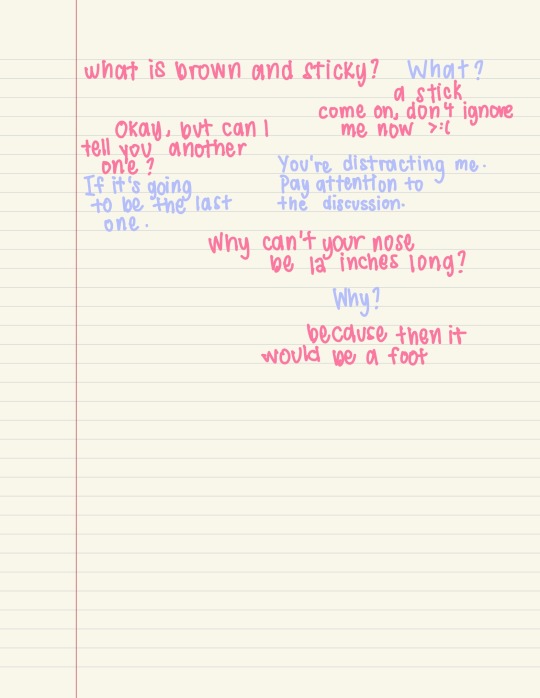 what is brown and sticky? What?
a stick
come on, don't ignore
me now >:(
Okay, but can I
tell you another
one?
You're distracting me.
Pay attention to
the discussion.
If it's going
to be the last
one.
Why can't your nose
be 12 inches long?
Why?
because then it
would be a foot